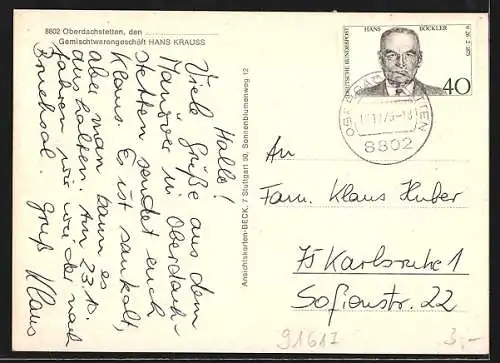 8802 Oberdachstetten, den
Gemischtwarengeschäft HANS KRAUSS
Hallo!
Viele Grüße aus dem
Manöver in Oberdach-
stetten sendet euch
Klaus. Es ist saukalt,
aber man kann es
aushalten. Am 23.10.
fahren wir wieder nach
Bruchsal. Gruß Klaus
Ansichtskarten-BECK, 7 Stuttgart 50, Sonnenblumenweg 12
DEUTSCHE BUNDESPOST
HANS BÖCKLER
40
8802
An
Fam. Klaus Huber
75 Karlsruhe 1
Sofienstr. 22
91617
3,-